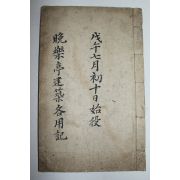 戊午七月初十日始役
晩樂亭建築各用記